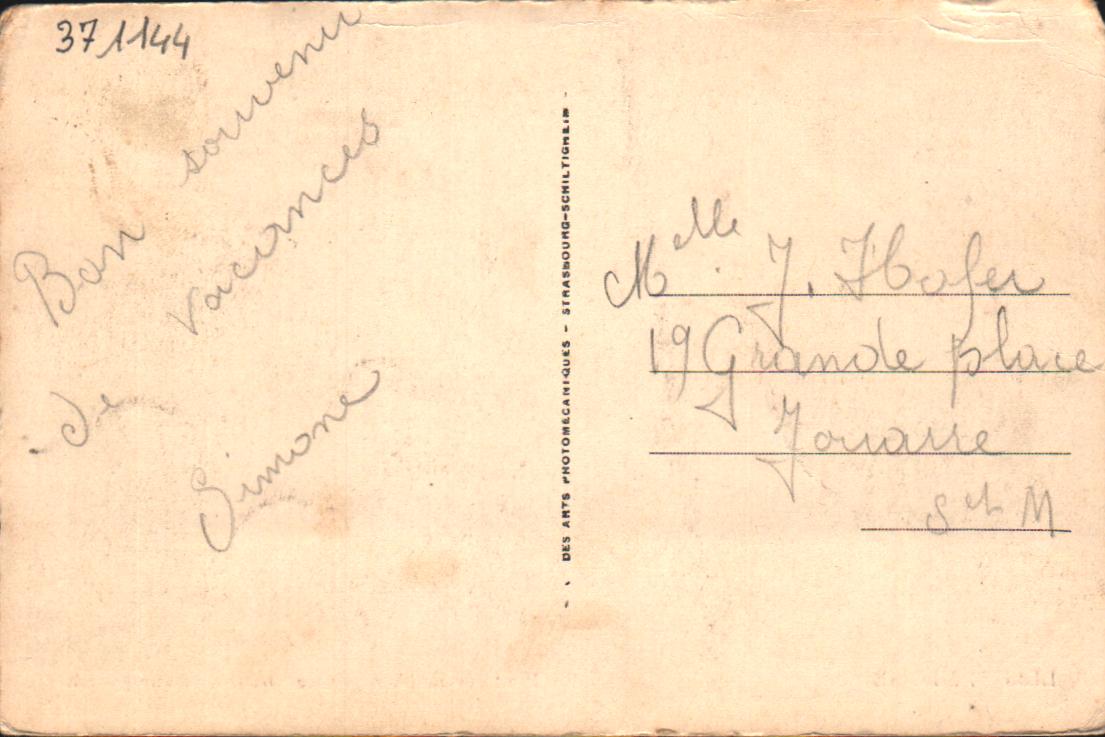 371144
Bon souvenir
de vacances
Simone
DES ARTS PHOTOMÉCANIQUES - STRASBOURG-SCHILTIGHEIM -
Melle J. Hofer
19 Grande place
Jouarre
S et M